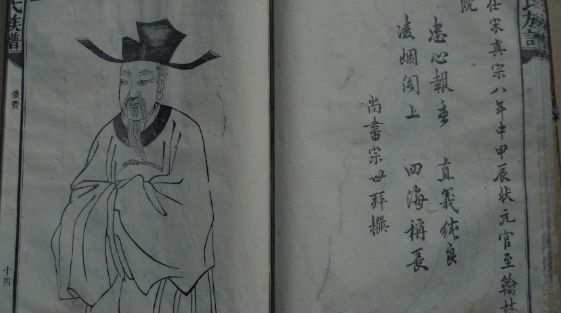 任宋真宗八年中甲辰状元官至翰林
院
忠心報主 直義純良
凌烟阁上 四海稱長
尚書宗世拜撰
氏族譜
像賛
十四